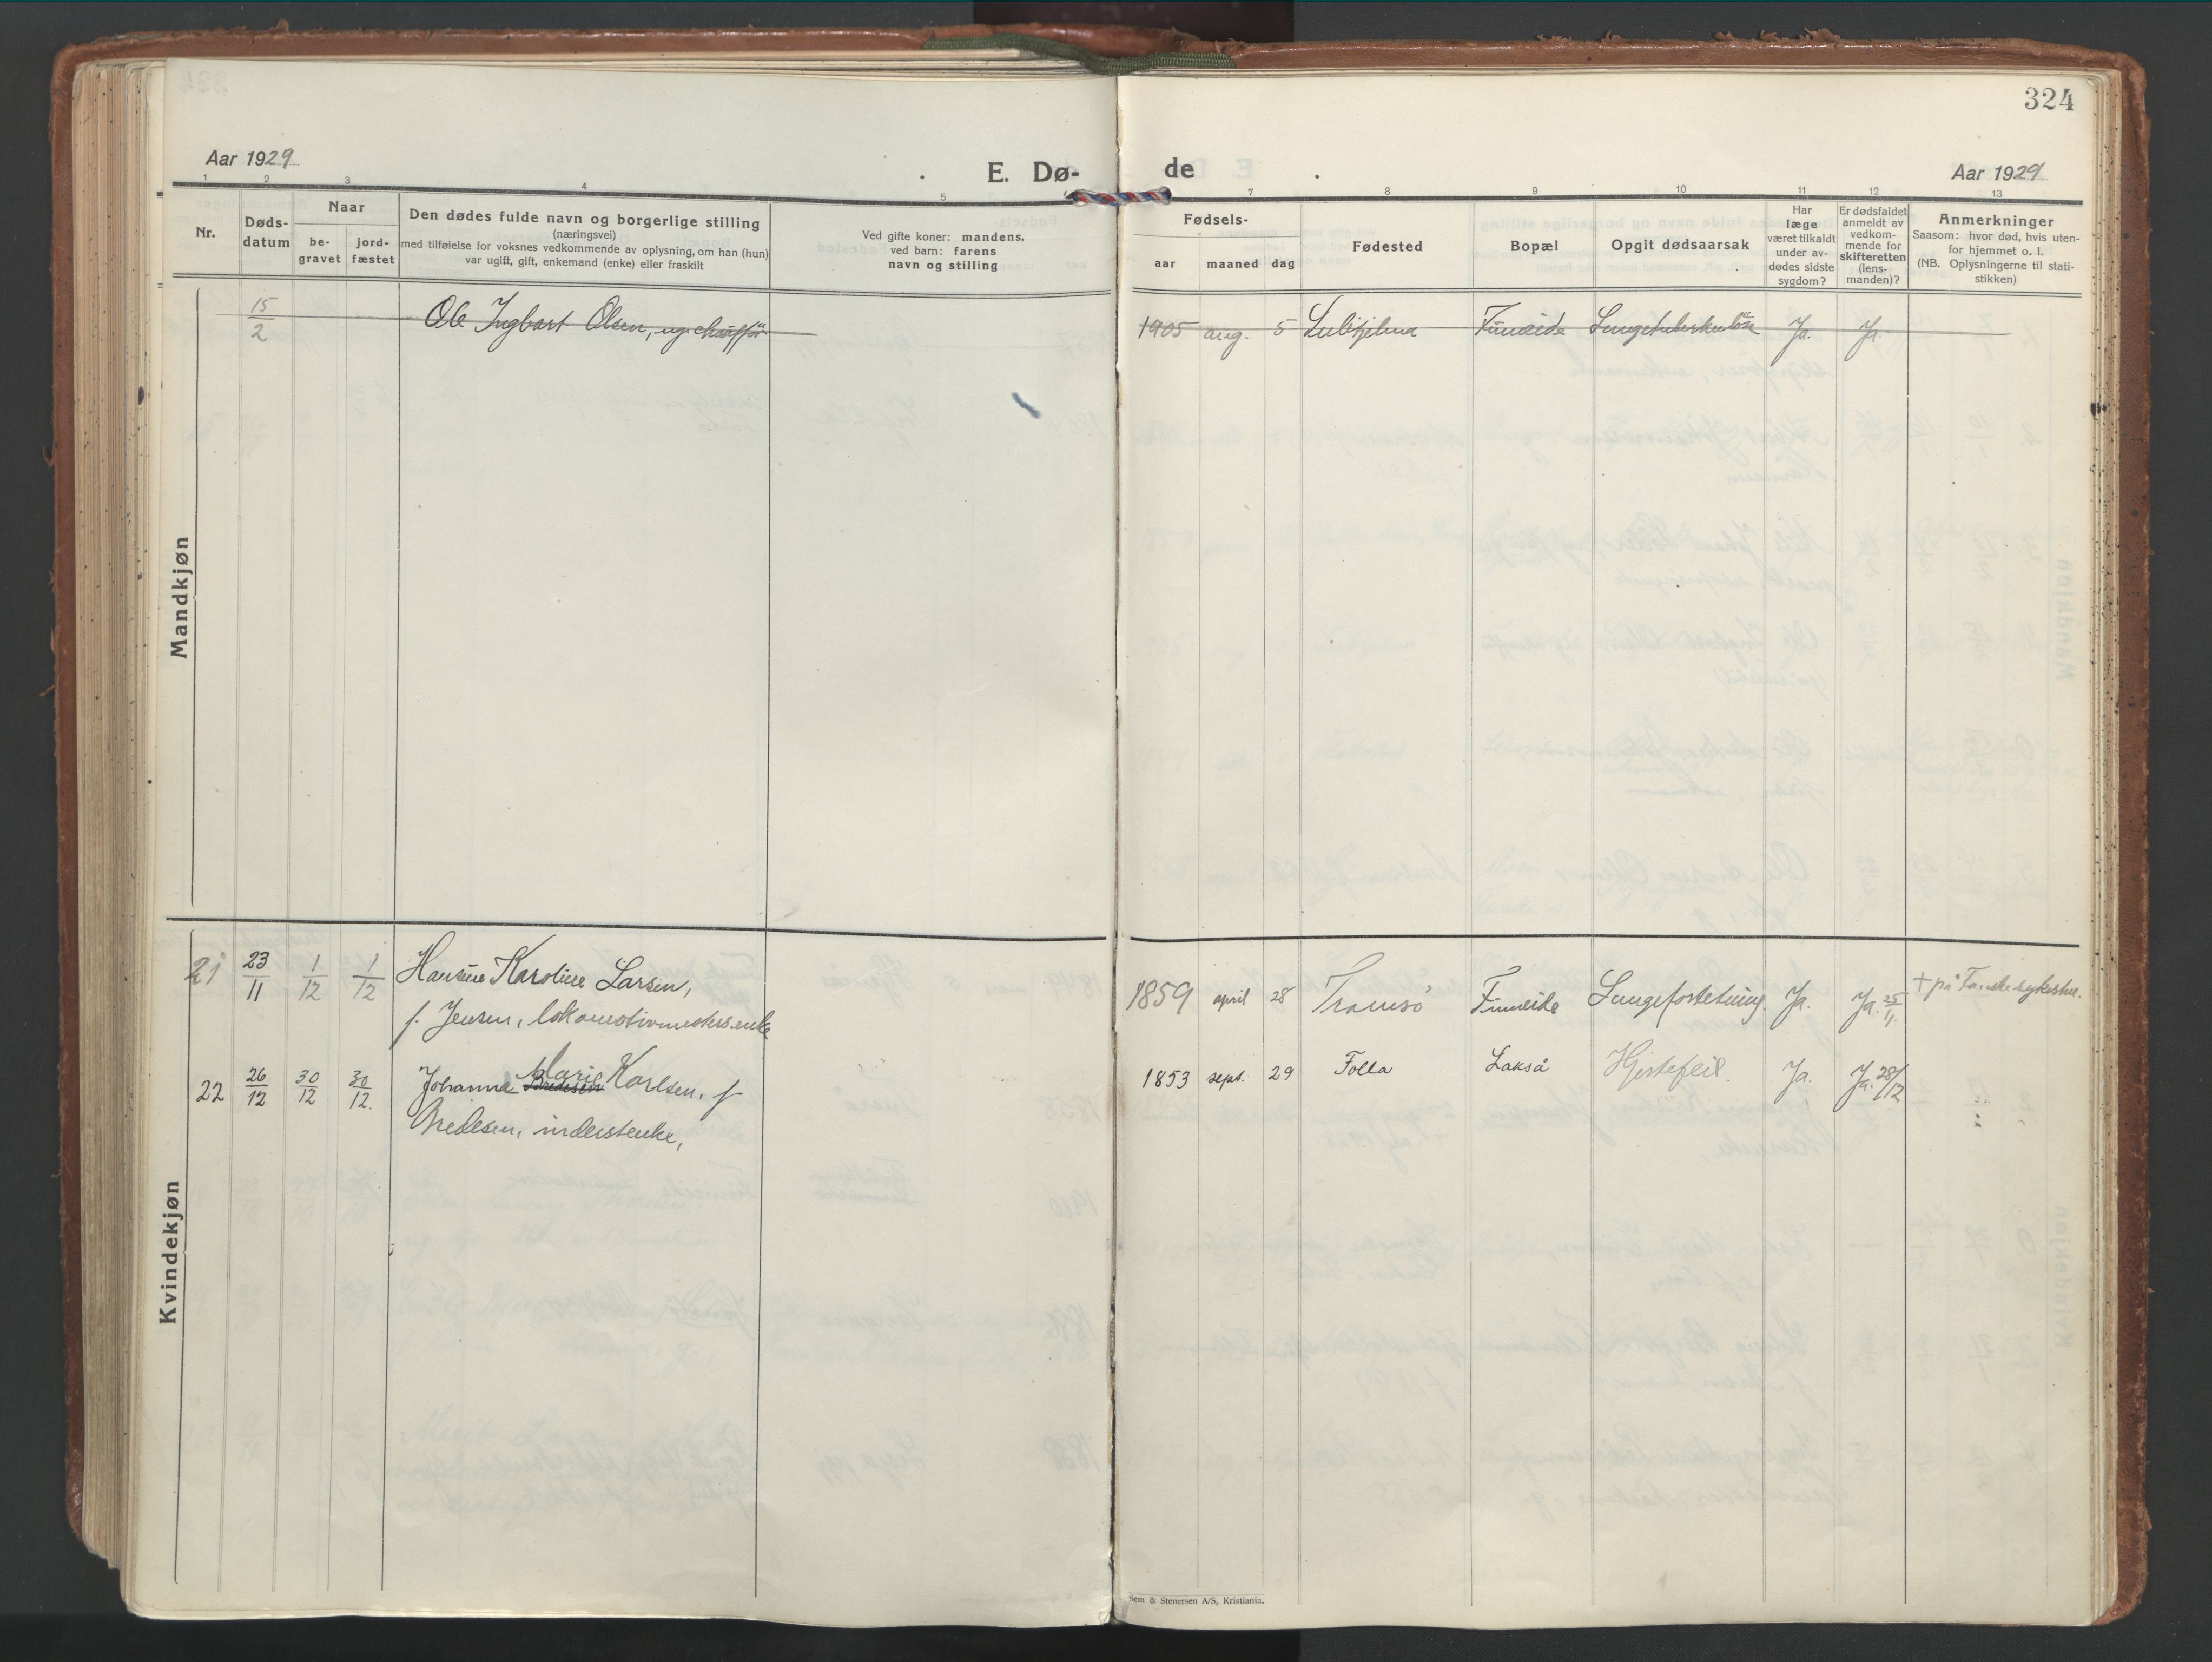 324
Aar 1929
E. Dø-
de
Aar 1929
1 2 3 4 5 7 8 9 10 11 12 13
Nr.
Døds-
datum
Naar
be-
gravet
jord-
fæstet
Den dødes fulde navn og borgerlige stilling
(næringsvei)
med tilføielse for voksnes vedkommende av oplysning, om han (hun)
var ugift, gift, enkemand (enke) eller fraskilt
Ved gifte koner: mandens,
ved barn: farens
navn og stilling
Fødsels-
aar maaned dag
Fødested
Bopæl
Opgit dødsaarsak
Har
læge
været tilkaldt
under av-
dødes sidste
sygdom?
Er dødsfaldet
anmeldt av
vedkom-
mende for
skifteretten
(lens-
manden)?
Anmerkninger
Saasom: hvor død, hvis uten-
for hjemmet o. l.
(NB. Oplysningerne til stati-
stikken)
Mandkjøn
15/2 Ole Ingbart Olsen, ug. chauffør 1905 aug. 5 Finneide Lungetuberkulose Ja. Ja.
Kvindekjøn
21 23/11 1/12 1/12 Hansine Karoline Larsen, 1859 april 28 Tromsø Finneide Lungefortetning. Ja. Ja. 25/11. † på Fauske sykestue.
f. Jensen, lokomotivmesterenke
22 26/12 30/12 30/12. Johanna Bredesen Marie Karlsen, f 1853 sept. 29 Folla Lakså Hjertefeil. Ja. Ja. 28/12
Bredesen, inderstenke,
Sem & Stenersen A/S, Kristiania.